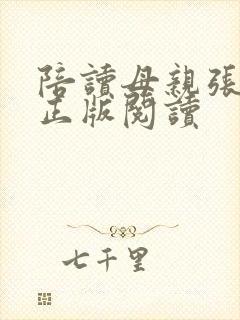 陪讀母親張
正版閱讀
七千里